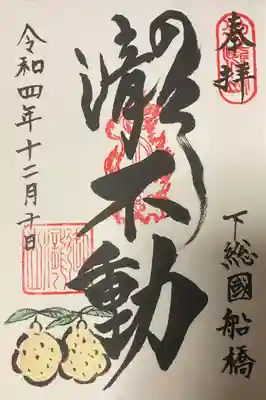 奉拝
下総國船橋
御瀧不動
令和四年十二月十日